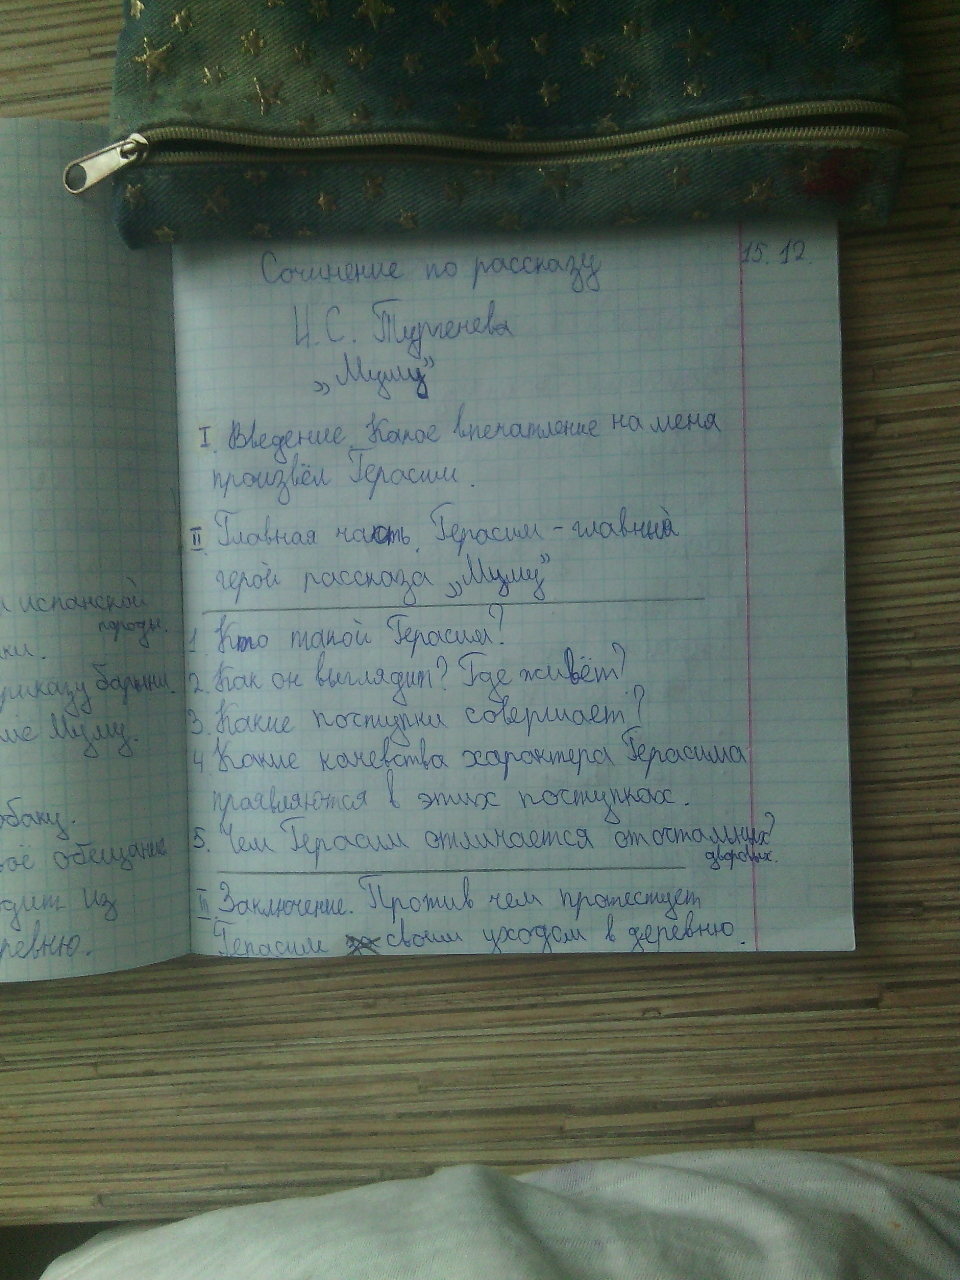 15. 12.
Сочинение по рассказу
И. С. Тургенева
„Муму”
I. Введение. Какое впечатление на меня
произвёл Герасим.
II. Главная часть. Герасим – главный
герой рассказа „Муму”
1. Кто такой Герасим?
2. Как он выглядит? Где живёт?
3. Какие поступки совершает?
4 Какие качества характера Герасима
проявляются в этих поступках.
5. Чем Герасим отличается от остальных?
дворовых.
III. Заключение. Против чем протестует
Герасим своим уходом в деревню.
испанской
породы.
ки.
приказу барыни.
Муму.
обаку.
воё обещание
одит из
ревню.